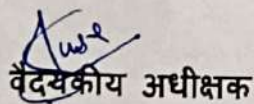 वैदयकीय अधीक्षक